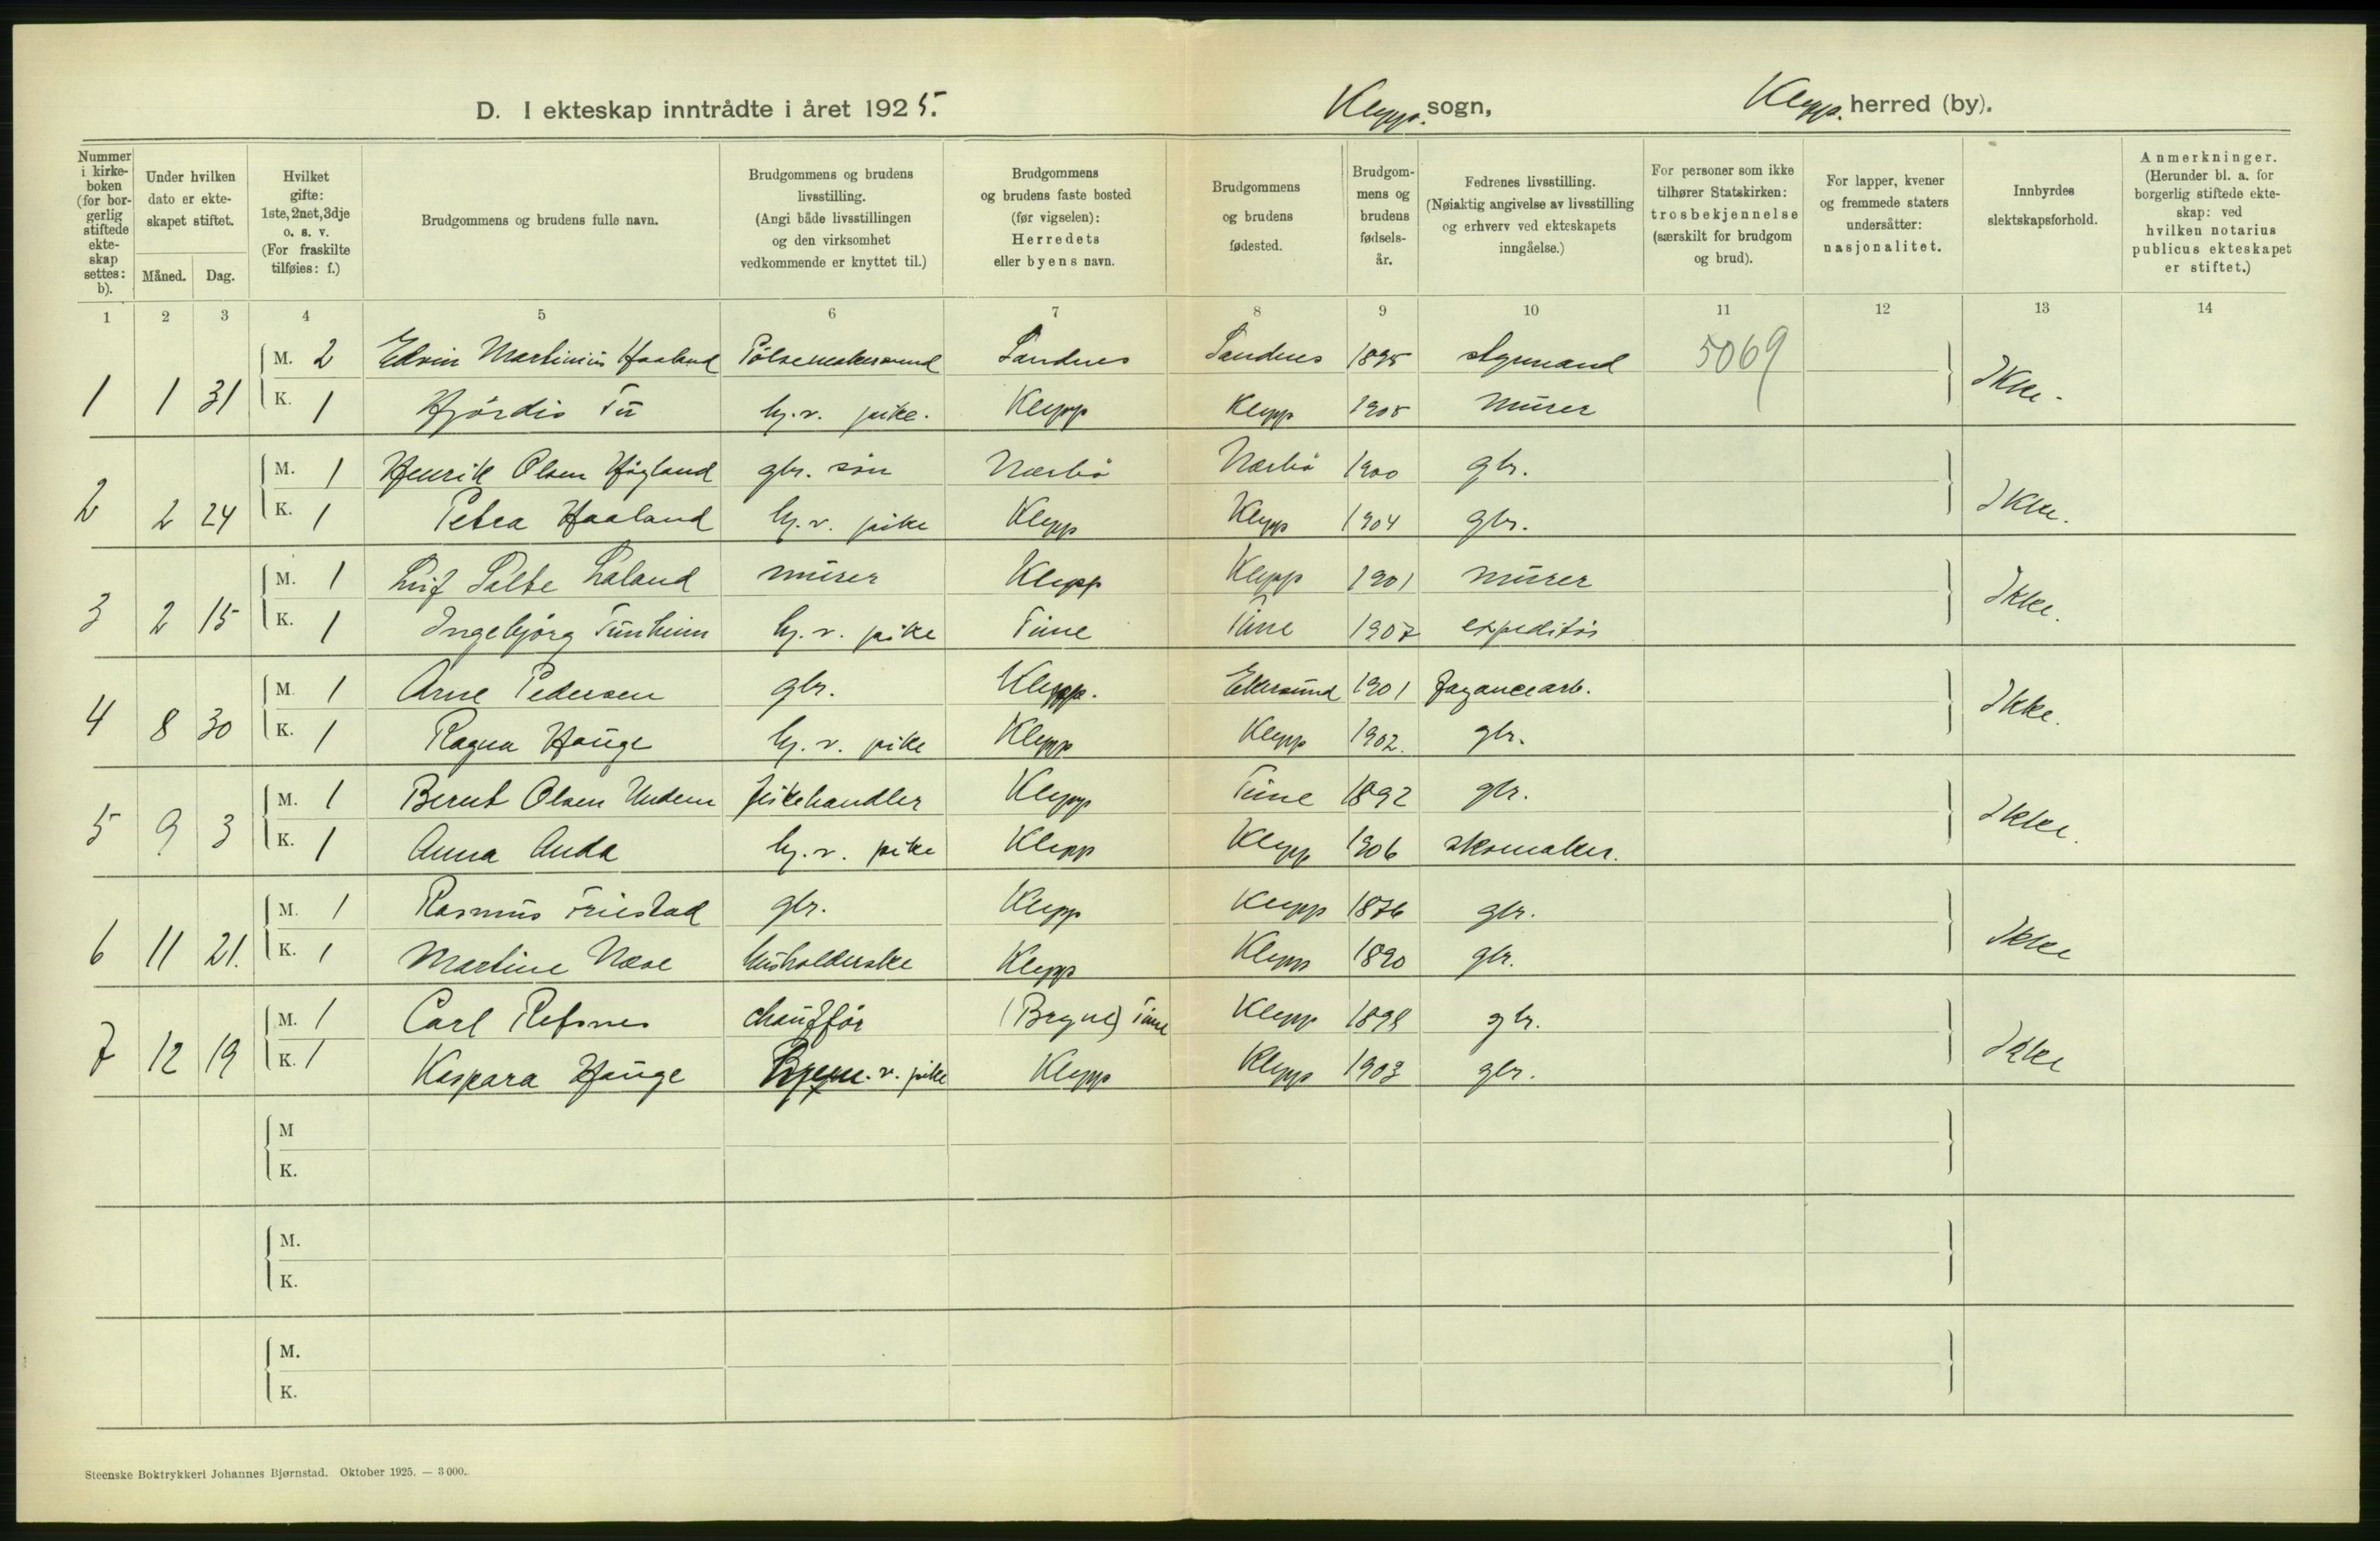 D. I ekteskap inntrådte i året 1925.
Klepp. sogn,
Klepp. herred (by).
Nummer i kirke- boken (for bor- gerlig stiftede ekte- skap settes: b).
Under hvilken dato er ekte- skapet stiftet.
Måned.
Dag.
Hvilket gifte: 1ste, 2net, 3dje o. s. v. (For fraskilte tilføies: f.)
Brudgommens og brudens fulle navn.
Brudgommens og brudens livsstilling. (Angi både livsstillingen og den virksomhet vedkommende er knyttet til.)
Brudgommens og brudens faste bosted (før vigselen): Herredets eller byens navn.
Brudgommens og brudens fødested.
Brudgom- mens og brudens fødsels- år.
Fedrenes livsstilling. (Nøiaktig angivelse av livsstilling og erhverv ved ekteskapets inngåelse.)
For personer som ikke tilhører Statskirken: trosbekjennelse (særskilt for brudgom og brud).
For lapper, kvener og fremmede staters undersåtter: nasjonalitet.
Innbyrdes slektskapsforhold.
Anmerkninger. (Herunder bl. a. for borgerlig stiftede ekte- skap: ved hvilken notarius publicus ekteskapet er stiftet.)
1 2 3 4 5 6 7 8 9 10 11 12 13 14
M. 2 Edvin Martinius Haaland Pölsemakersvend Sandnes Sandnes 1895 styrmand 5069
1 1 31 K. 1 Hjördis Tu hj. v. pike. Klepp Klepp 1905 murer Ikke.
M. 1 Henrik Olsen Högland gbr. sön Nærbö Nærbö 1900 gbr.
2 2 24 K. 1 Petra Haaland hj. v. pike Klepp Klepp 1904 gbr. Ikke.
M. 1 Leif Salte Laland murer Klepp Klepp 1901 murer
3 2 15 K. 1 Ingebjörg Tunheim hj. v. pike Time Time 1907 expeditör Ikke.
M. 1 Arne Pedersen gbr. Klepp. Ekersund 1901 fayancearb.
4 8 30 K. 1 Ragna Hauge hj. v. pike Klepp Klepp 1902. gbr. Ikke.
M. 1 Bernt Olsen Undem fiskehandler Klepp Time 1892 gbr.
5 9 3 K. 1 Anna Anda hj. v. pike Klepp Klepp 1906 skomaker. Ikke.
M. 1 Rasmus Friestad gbr. Klepp Klepp 1876 gbr.
6 11 21. K. 1 Martine Næse husholderske Klepp Klepp 1890 gbr. Ikke
M. 1 Carl Refsnes chaufför (Bryne) Time Klepp 1898 gbr.
7 12 19 K. 1 Kaspara Hauge v. pike Klepp Klepp 1903 gbr. Ikke
M
K.
M.
K.
M.
K.
Steenske Boktrykkeri Johannes Bjørnstad. Oktober 1925. — 3 000.